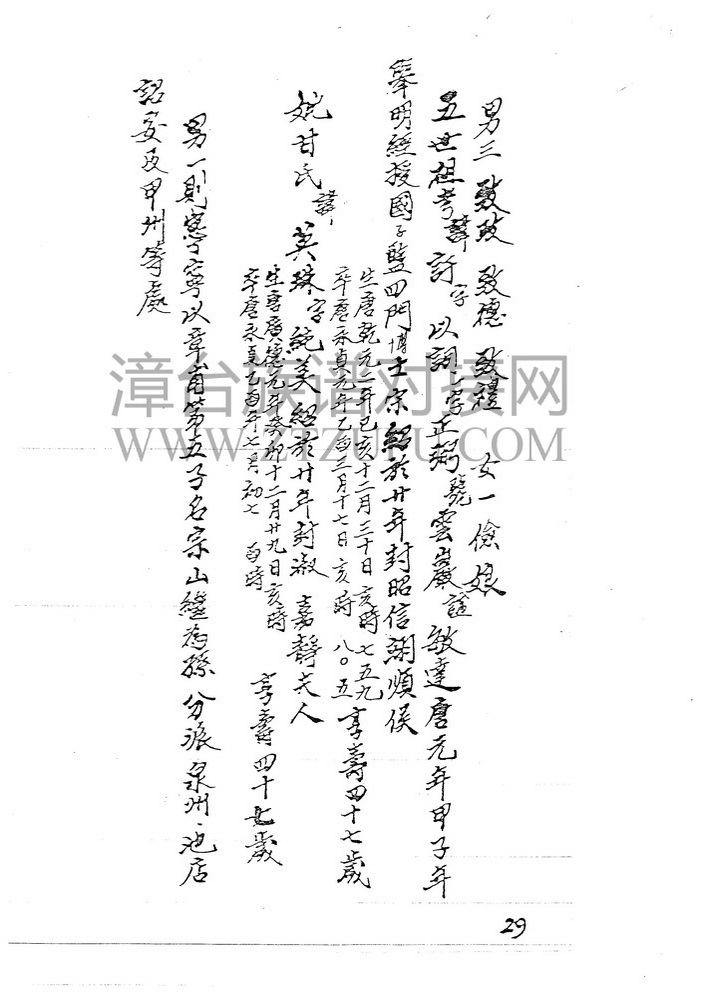 男三 致政 致德 致禮 女一 儉娘
五世祖考諱訏字以詞字正弼號雲巖諡敏達唐元年甲子年
舉明經授國子監四門博士宋紹於廿年封昭信翊順侯
生唐乾元二年己亥十二月三十日亥時七五九
卒唐永貞元年乙酉三月十七日亥時 八〇五 享壽四十七歲
妣甘氏諱英琭字純美紹於廿年封淑嘉靜夫人
生唐廣德元年癸卯十二月廿九日亥時
卒唐永貞乙酉年七月初七 酉時 享壽四十七歲
男一則 寧以章甫第五子名宗山繼為孫分派泉州、池店
詔安及甲州等處
29
漳台族谱对接网
WWW.ZTZUPU.COM